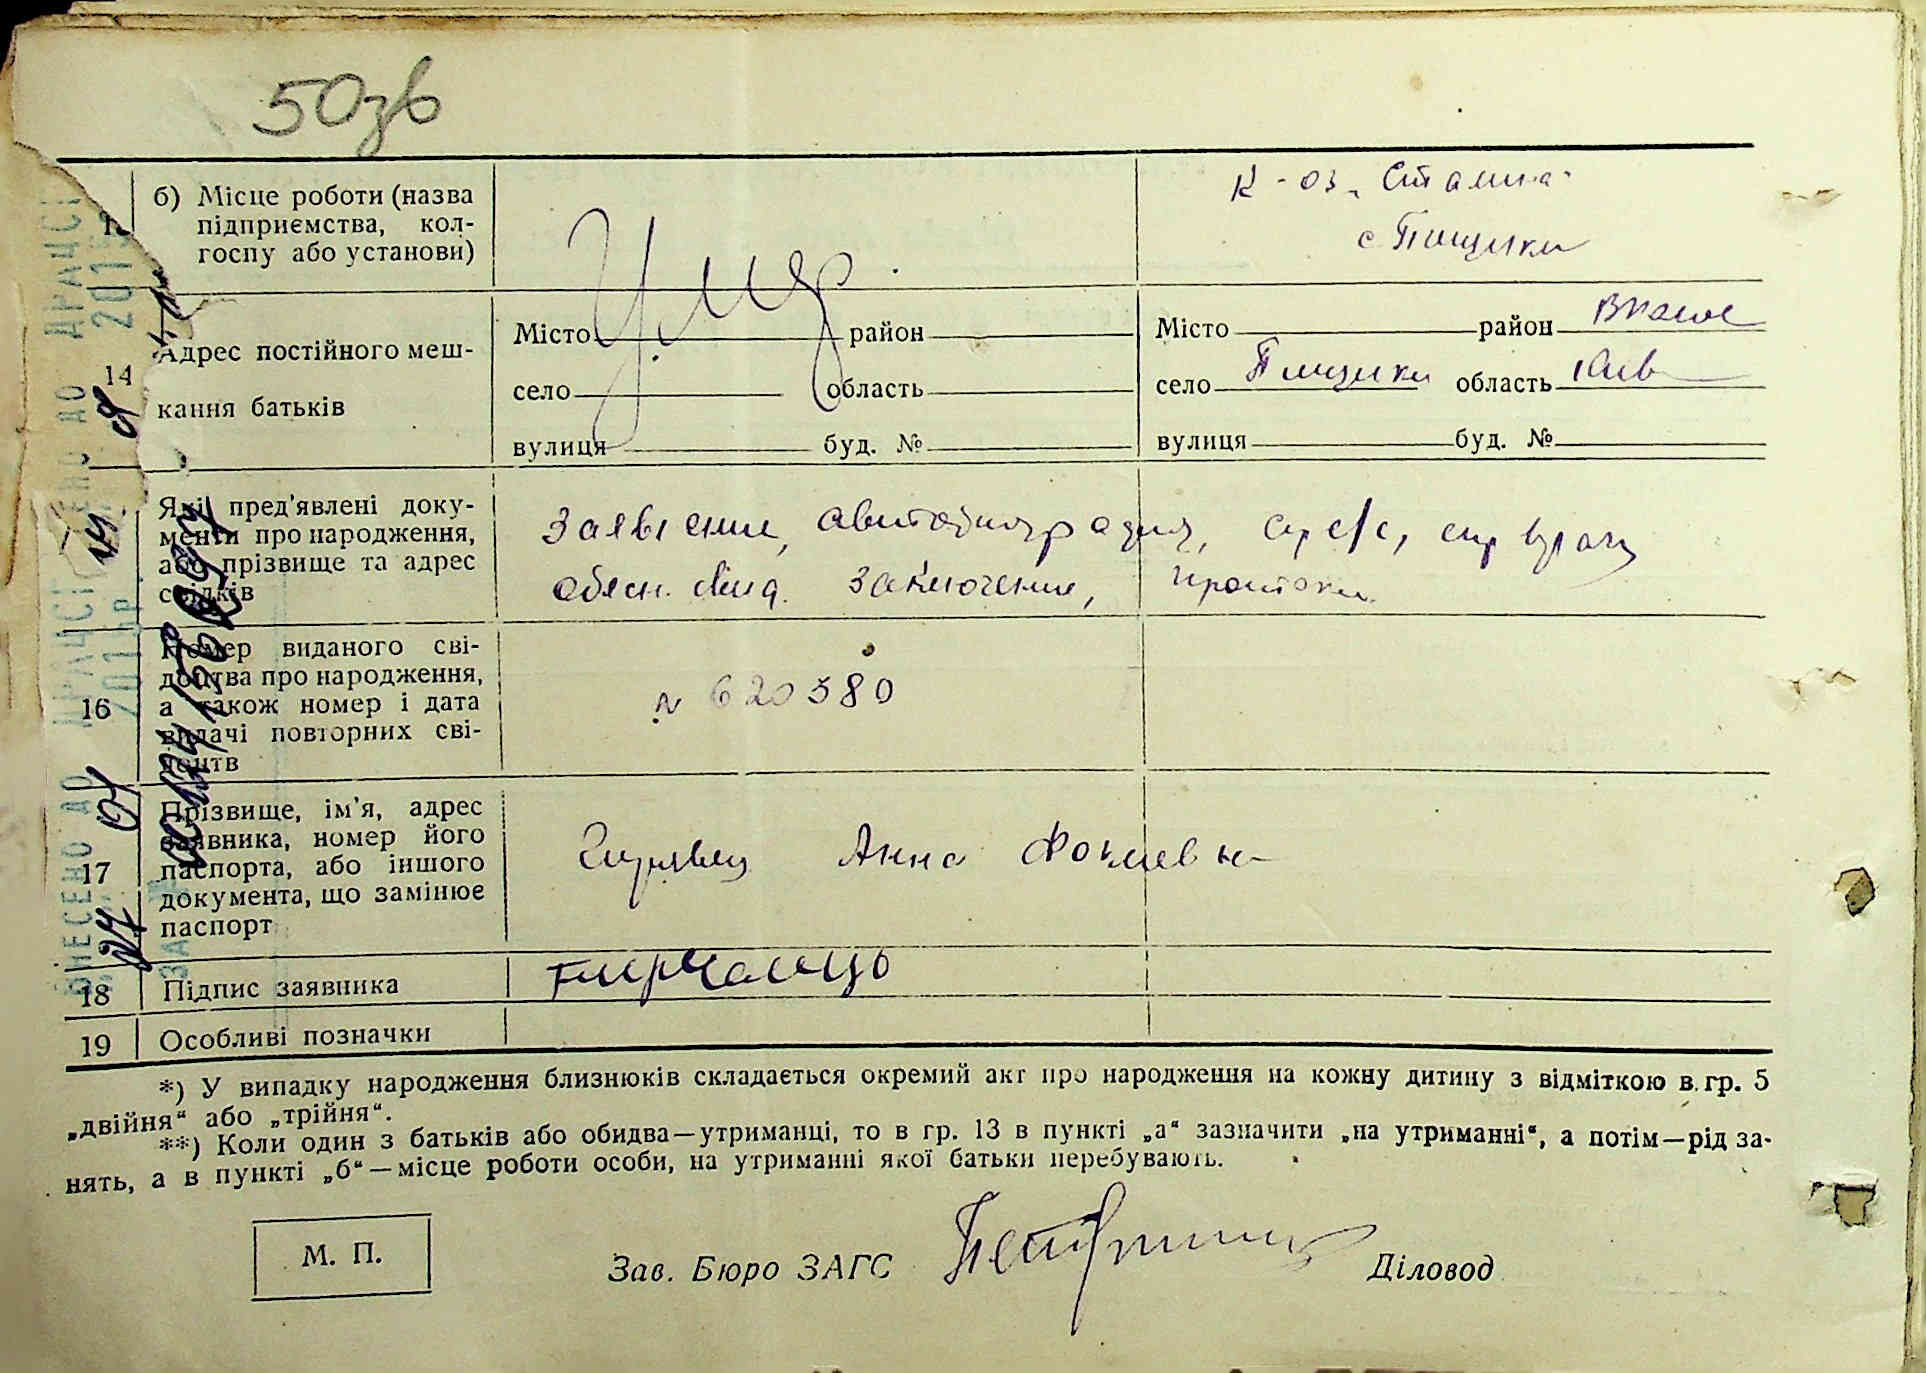 50зв
б) Місце роботи (назва
підприємства, кол-
госпу або установи)
К-оз „Сталина"
с Пищики
Умер
14
Адрес постійного меш-
кання батьків
Місто район
село область
вулиця буд. №
Місто район
село Пищики область Киев
вулиця буд. №
Які пред'явлені доку-
менти про народження,
або прізвище та адрес
свідків
Заявление, автобиография, спр с/с, спр врача
обясн. свид. Заключение,
16
Номер виданого сві-
доцтва про народження,
а також номер і дата
видачі повторних сві-
доцтв
№ 620380
17
Прізвище, ім'я, адрес
заявника, номер його
паспорта, або іншого
документа, що замінює
паспорт
Анна Фокиевна
18
Підпис заявника
19
Особливі позначки
*) У випадку народження близнюків складається окремий акт про народження на кожну дитину з відміткою в гр. 5
„двійня“ або „трійня“.
**) Коли один з батьків або обидва—утриманці, то в гр. 13 в пункті „а“ зазначити „на утриманні“, а потім—рід за-
нять, а в пункті „б“—місце роботи особи, на утриманні якої батьки перебувають.
М. П.
Зав. Бюро ЗАГС
Діловод
ВНЕСЕНО ДО ДРАЦСГ